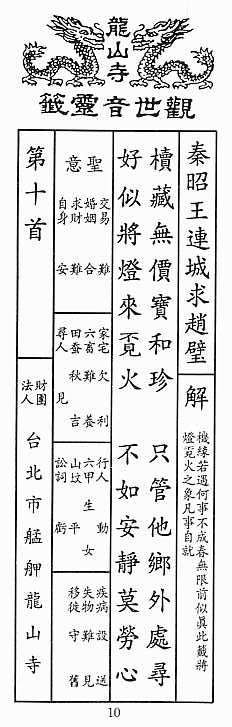 龍山寺
觀世音靈籤
秦昭王連城求趙璧
解
機緣若遇何事不成春無限前似真此籤將
燈覓火之象凡事自就
櫝藏無價寶和珍 只管他鄉外處尋
好似將燈來覓火 不如安靜莫勞心
聖意
交易 難
婚姻 合
求財 難
自身 安
家宅 欠利
六畜 難養
田蚕 秋吉
尋人 見
行人 動
六甲 生女
山坟 平
訟詞 虧
疾病 設送
失物 難見
移徙 守舊
第十首
財團法人
台北市艋舺龍山寺
10